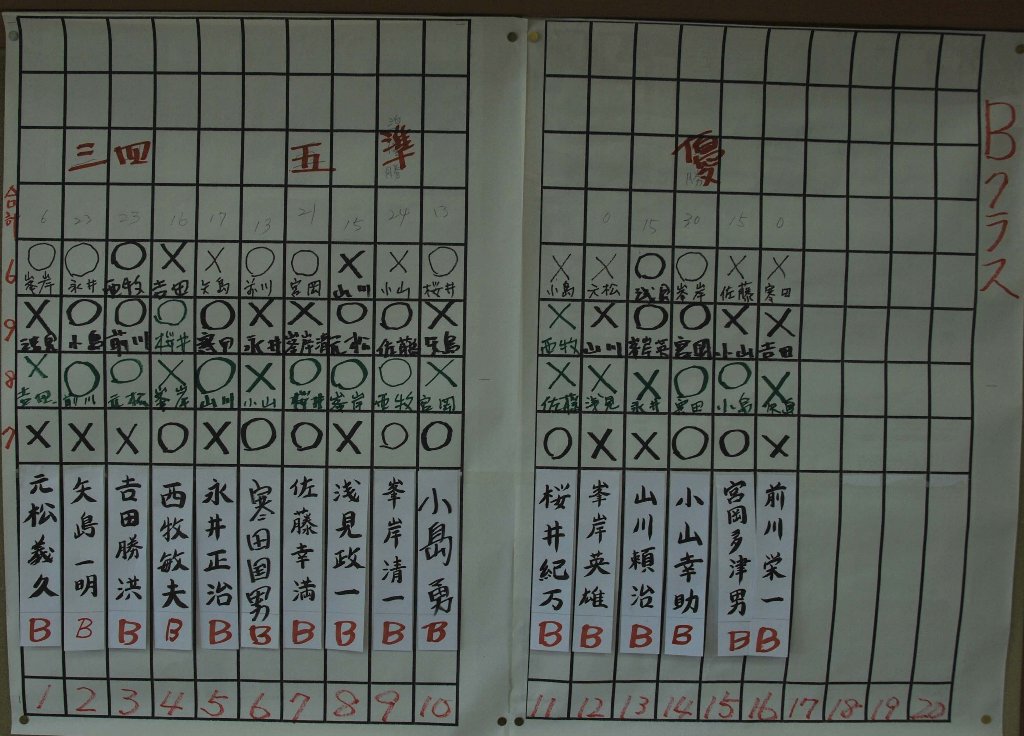 Bクラス
三 四 五 準 優
合計 6 23 23 16 17 13 21 15 24 13 0 15 30 15 0
6 ○ ○ ○ × × ○ ○ × × ○ × × ○ ○ × ×
峯岸 永井 西牧 吉田 矢島 前川 宮岡 山川 小山 桜井 小島 元松 浅見 峯岸 佐藤 寒田
9 × ○ ○ ○ ○ × × ○ ○ × × × ○ ○ × ×
浅見 小島 前川 桜井 寒田 永井 峯岸清 元松 佐藤 矢島 西牧 山川 峯岸英 宮岡 小山 吉田
8 × ○ ○ × ○ × ○ ○ ○ × × × × ○ ○ ×
吉田 前川 元松 峯岸 山川 小山 桜井 峯岸 西牧 宮岡 佐藤 浅見 永井 寒田 小島 矢島
7 × × × ○ × ○ ○ × ○ ○ ○ × × ○ ○ ×
元松義久
矢島一明
吉田勝洪
西牧敏夫
永井正治
寒田国男
佐藤幸満
浅見政一
峯岸清一
小島勇
桜井紀万
峯岸英雄
山川頼治
小山幸助
宮岡多津男
前川栄一
B B B B B B B B B B B B B B B B
1 2 3 4 5 6 7 8 9 10 11 12 13 14 15 16 17 18 19 20